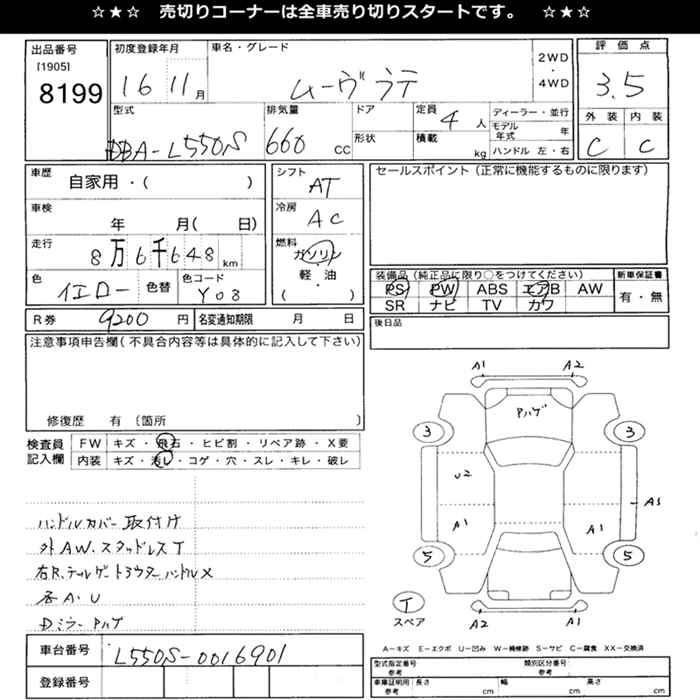 ☆★☆ 売切りコーナーは全車売り切りスタートです。 ☆★☆
出品番号
[1905]
8199
初度登録年月
16 11月
車名・グレード
ムーヴ ラテ
2WD
・
4WD
評価点
3.5
外装 内装
C C
型式
DBA-L550S
排気量
660 CC
ドア
形状
定員
4 人
積載
kg
ディーラー・並行
モデル年式 年
ハンドル 左・右
車歴
自家用・( )
車検
年 月( 日)
走行
8万6千648 km
色
イエロー
色替
色コード
Y03
シフト
AT
冷房
AC
燃料
ガソリン
・
軽・油
( )
セールスポイント(正常に機能するものに限ります)
装備品(純正品に限り○をつけてください)
PS PW ABS エアB AW
SR ナビ TV カワ
新車保証書
有・無
R券 9200 円
名変通知期限 月 日
後日品
注意事項申告欄(不具合内容等は具体的に記入して下さい)
修復歴 有 〔箇所 〕
検査員
記入欄
FW キズ・飛石・ヒビ割・リペア跡・X要
内装 キズ・汚レ・コゲ・穴・スレ・キレ・破レ
ハンドルカバー取付け
外AW.スタッドレスT
右R.テールゲートアウターハンドルX
各A.U
Dミラー Pハゲ
A1 A2
Pハゲ
3 3
U2
A3
A1 A1
5 5
T
スペア
A2 A1
車台番号
L550S-0016901
登録番号
A−キズ E−エクボ U−凹み W−補修跡 S−サビ C−腐食 XX−交換済
型式指定番号
参考
類別区分番号
参考
車庫証明用
参考
長さ cm
幅 cm
高さ cm